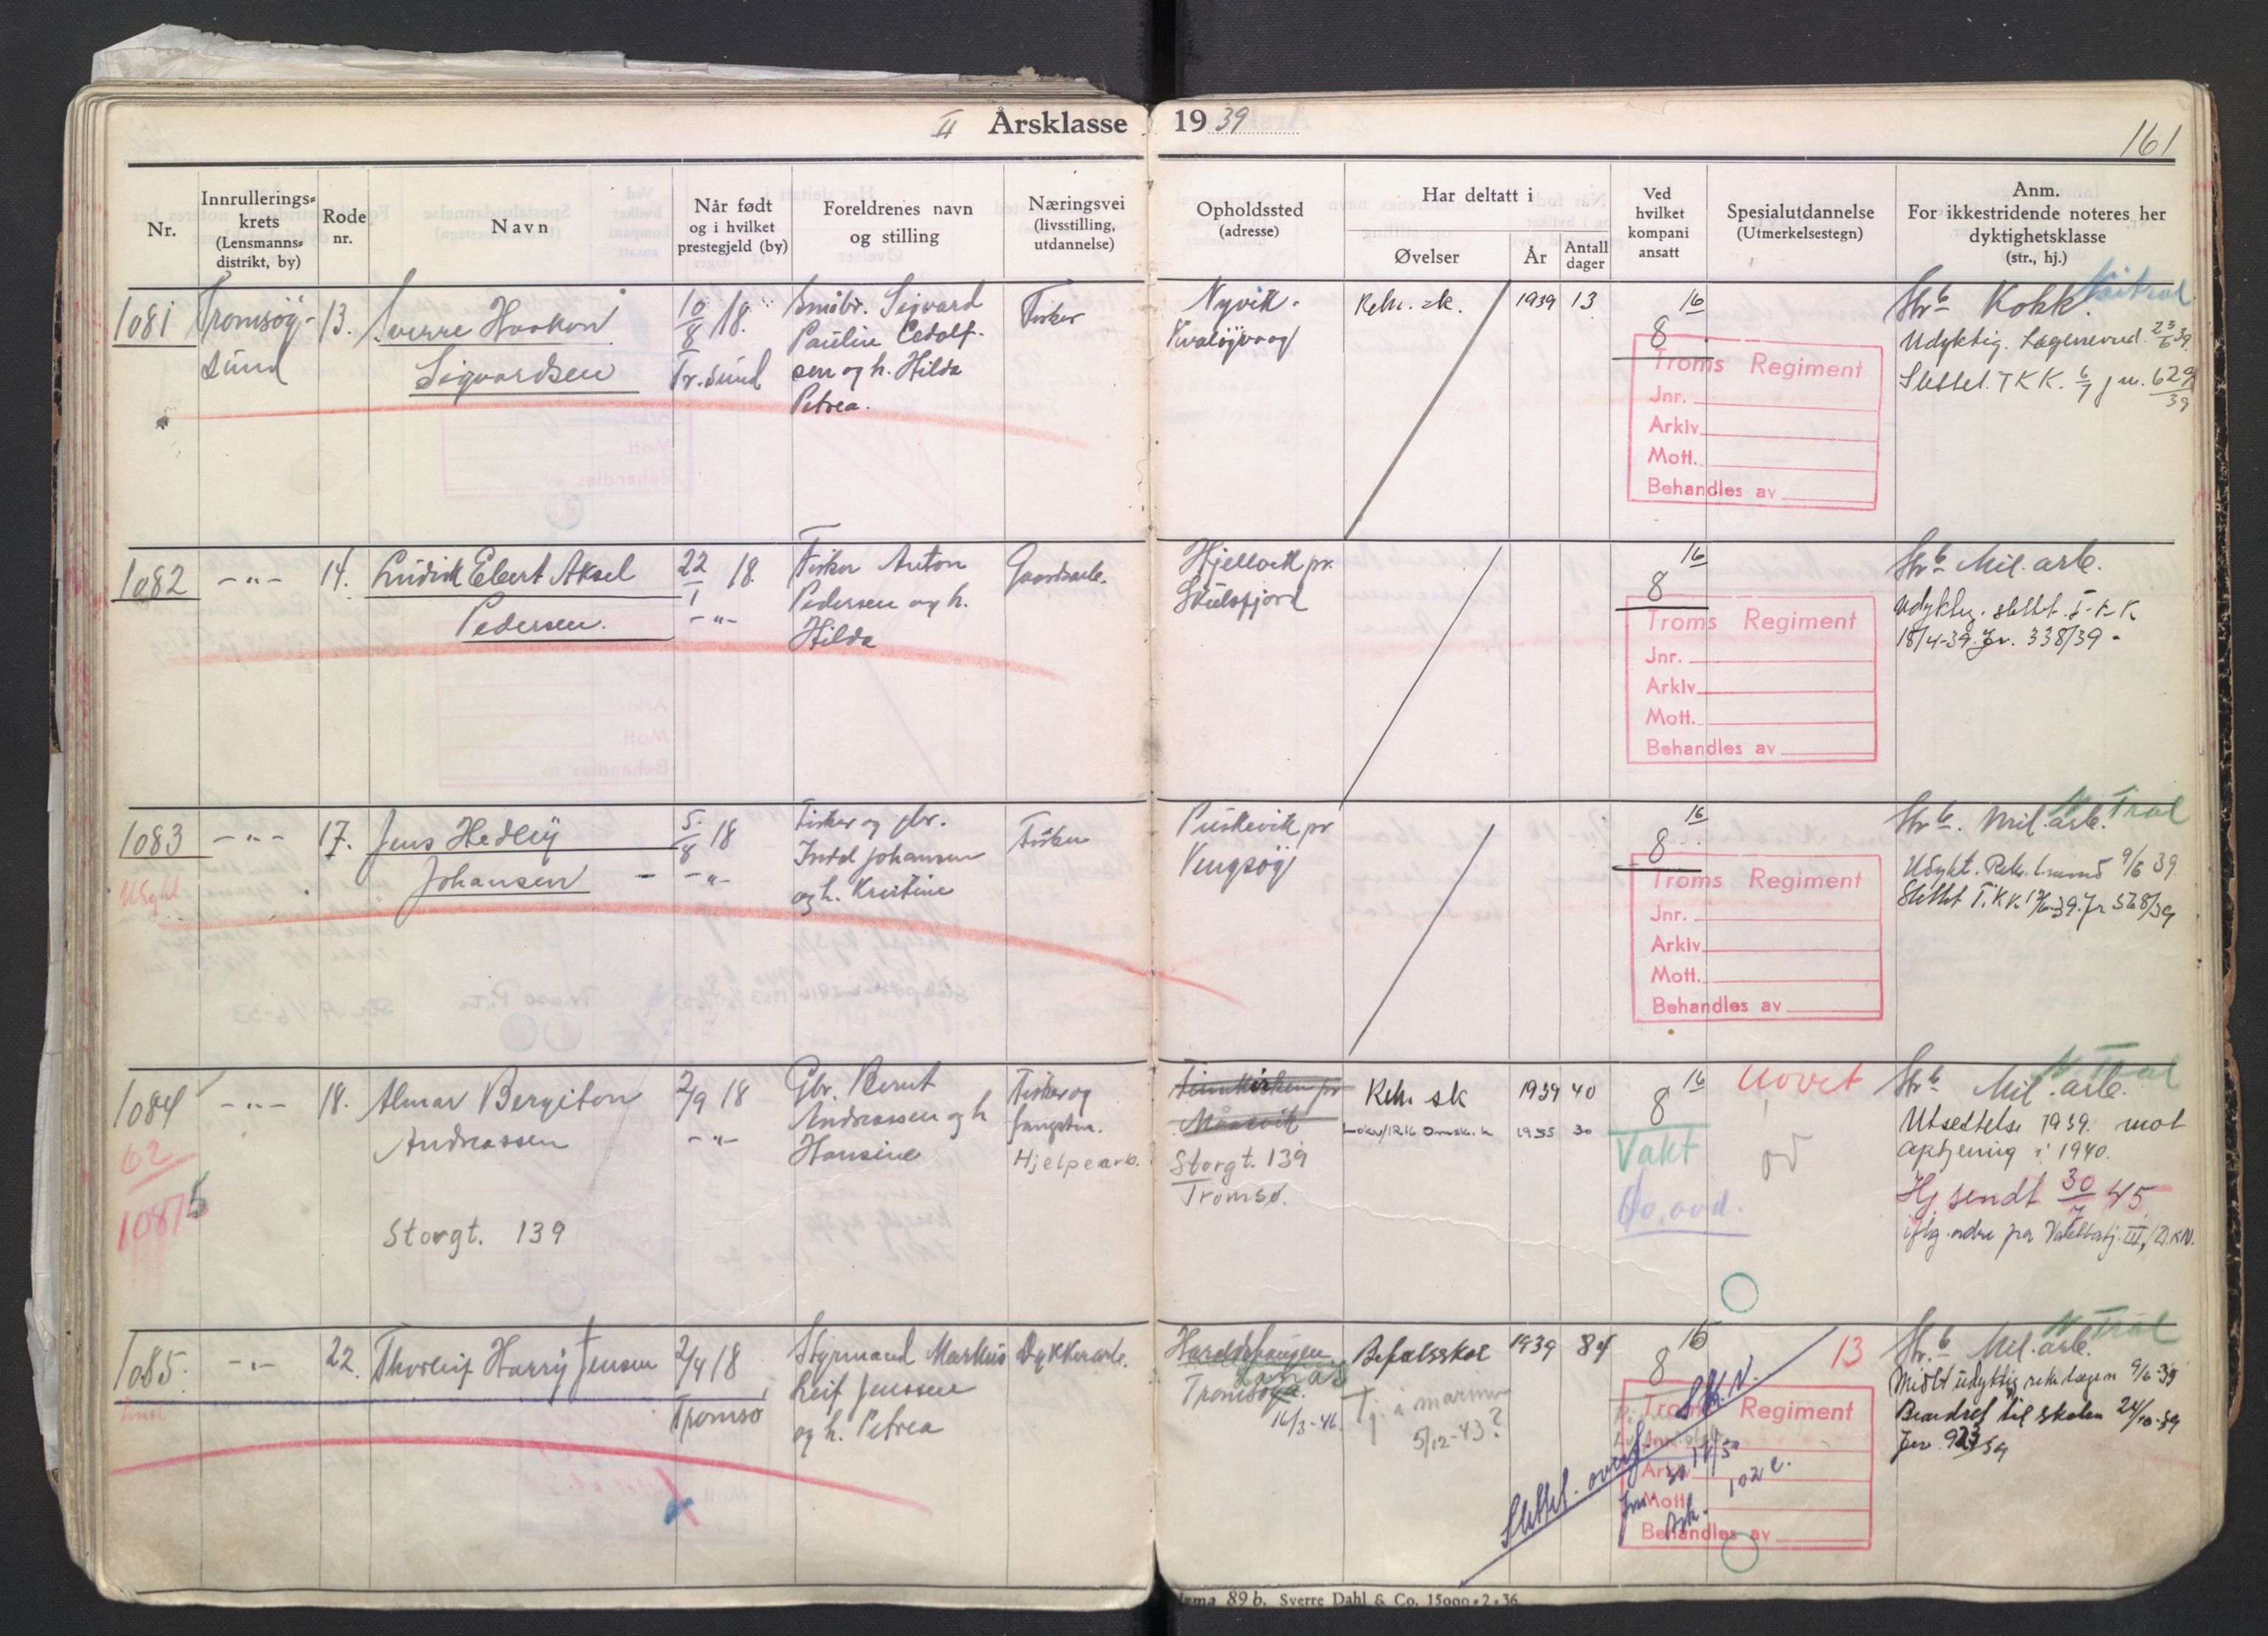 II Årsklasse 1939
161
Nr.
Innrullerings-
krets
(Lensmanns-
distrikt, by)
Rode
nr.
Navn
Når født
og i hvilket
prestegjeld (by)
Foreldrenes navn
og stilling
Næringsvei
(livsstilling,
utdannelse)
Opholdssted
(adresse)
Har deltatt i
Øvelser
År
Antall
dager
Ved
hvilket
kompani
ansatt
Spesialutdannelse
(Utmerkelsestegn)
Anm.
For ikkestridende noteres her
dyktighetsklasse
(str., hj.)
1081
Tromsöy-
sund
13.
Sverre Haakon
Sigvardsen
10/8 18.
Tr.sund
Småbr. Sigvard
Paulin Edolf-
sen og h. Hilda
Petrea.
Fisker
Nyvik.
Kvaløyvaag
Rekr. sk.
1939
13
16
8
Troms Regiment
Jnr.
Arkiv
Mott.
Behandles av
Str. Kokk.
Udyktig. Lægenevnd. 23/6 39.
Slettet. T K K. 6/7 jnr. 629/39
1082
-"-
14.
Ludvik Ebert Aksel
Pedersen.
22/1 18.
-"-
Fisker Anton
Pedersen og h.
Hilda
Gaardsarb.
Hjellvik pr.
Skulsfjord
16
8
Troms Regiment
Jnr.
Arkiv
Mott.
Behandles av
Str. Mil. arb.
Udyktig. slettet. T.K.K
18/4-39. Jr. 338/39
1083
Udykt
-"-
17.
Jens Hedley
Johansen
5/8 18
-"-
Fisker og gbr.
Johansen
og h. Kristine
Fisker
Vengsøy
16
8
Troms Regiment
Jnr.
Arkiv
Mott.
Behandles av
N. Tral
Str. Mil. arb.
Udykt. Rekr. l.nevnd 9/6 39.
Slettet T.K.K. Jr 568/39
1084
62
10875
-"-
18.
Almar Bergiton
Andreassen
Storgt. 139
2/9 18
-"-
Gbr. Bernt
Andreassen og h
Hansine
Fisker og
fangstm.
Hjelpearb.
Storgt. 139
Tromsø.
Rekr. sk
1939
40
1955
30
16
8
Vakt
Uovet
Str. Mil. arb.
Utsettelse 1939. mot
optjening i 1940.
Hj. sendt 30/7 45
iflg. ordre fra Vaktbatj. III, D.K.N.
1085.
-"-
22.
Thorleif Harry Jensen
2/4 18
Tromsø
Styrmand Markus
Leif Jenssen
og h. Petrea
Dykkerarb.
16/3-46
Befalsskol
1939
84
Tj. i marinen
5/12-43?
16
8
13
Troms Regiment
Jnr.
Arkiv
Mott.
Behandles av
Slettet. overf. Sk.N.
N Tral
Str. Mil. arb.
Midlt udyktig rekr. lægen 9/6-39
Beordret til skolen 24/10-39
Sverre Dahl & Co. 15000 • 2 • 36.